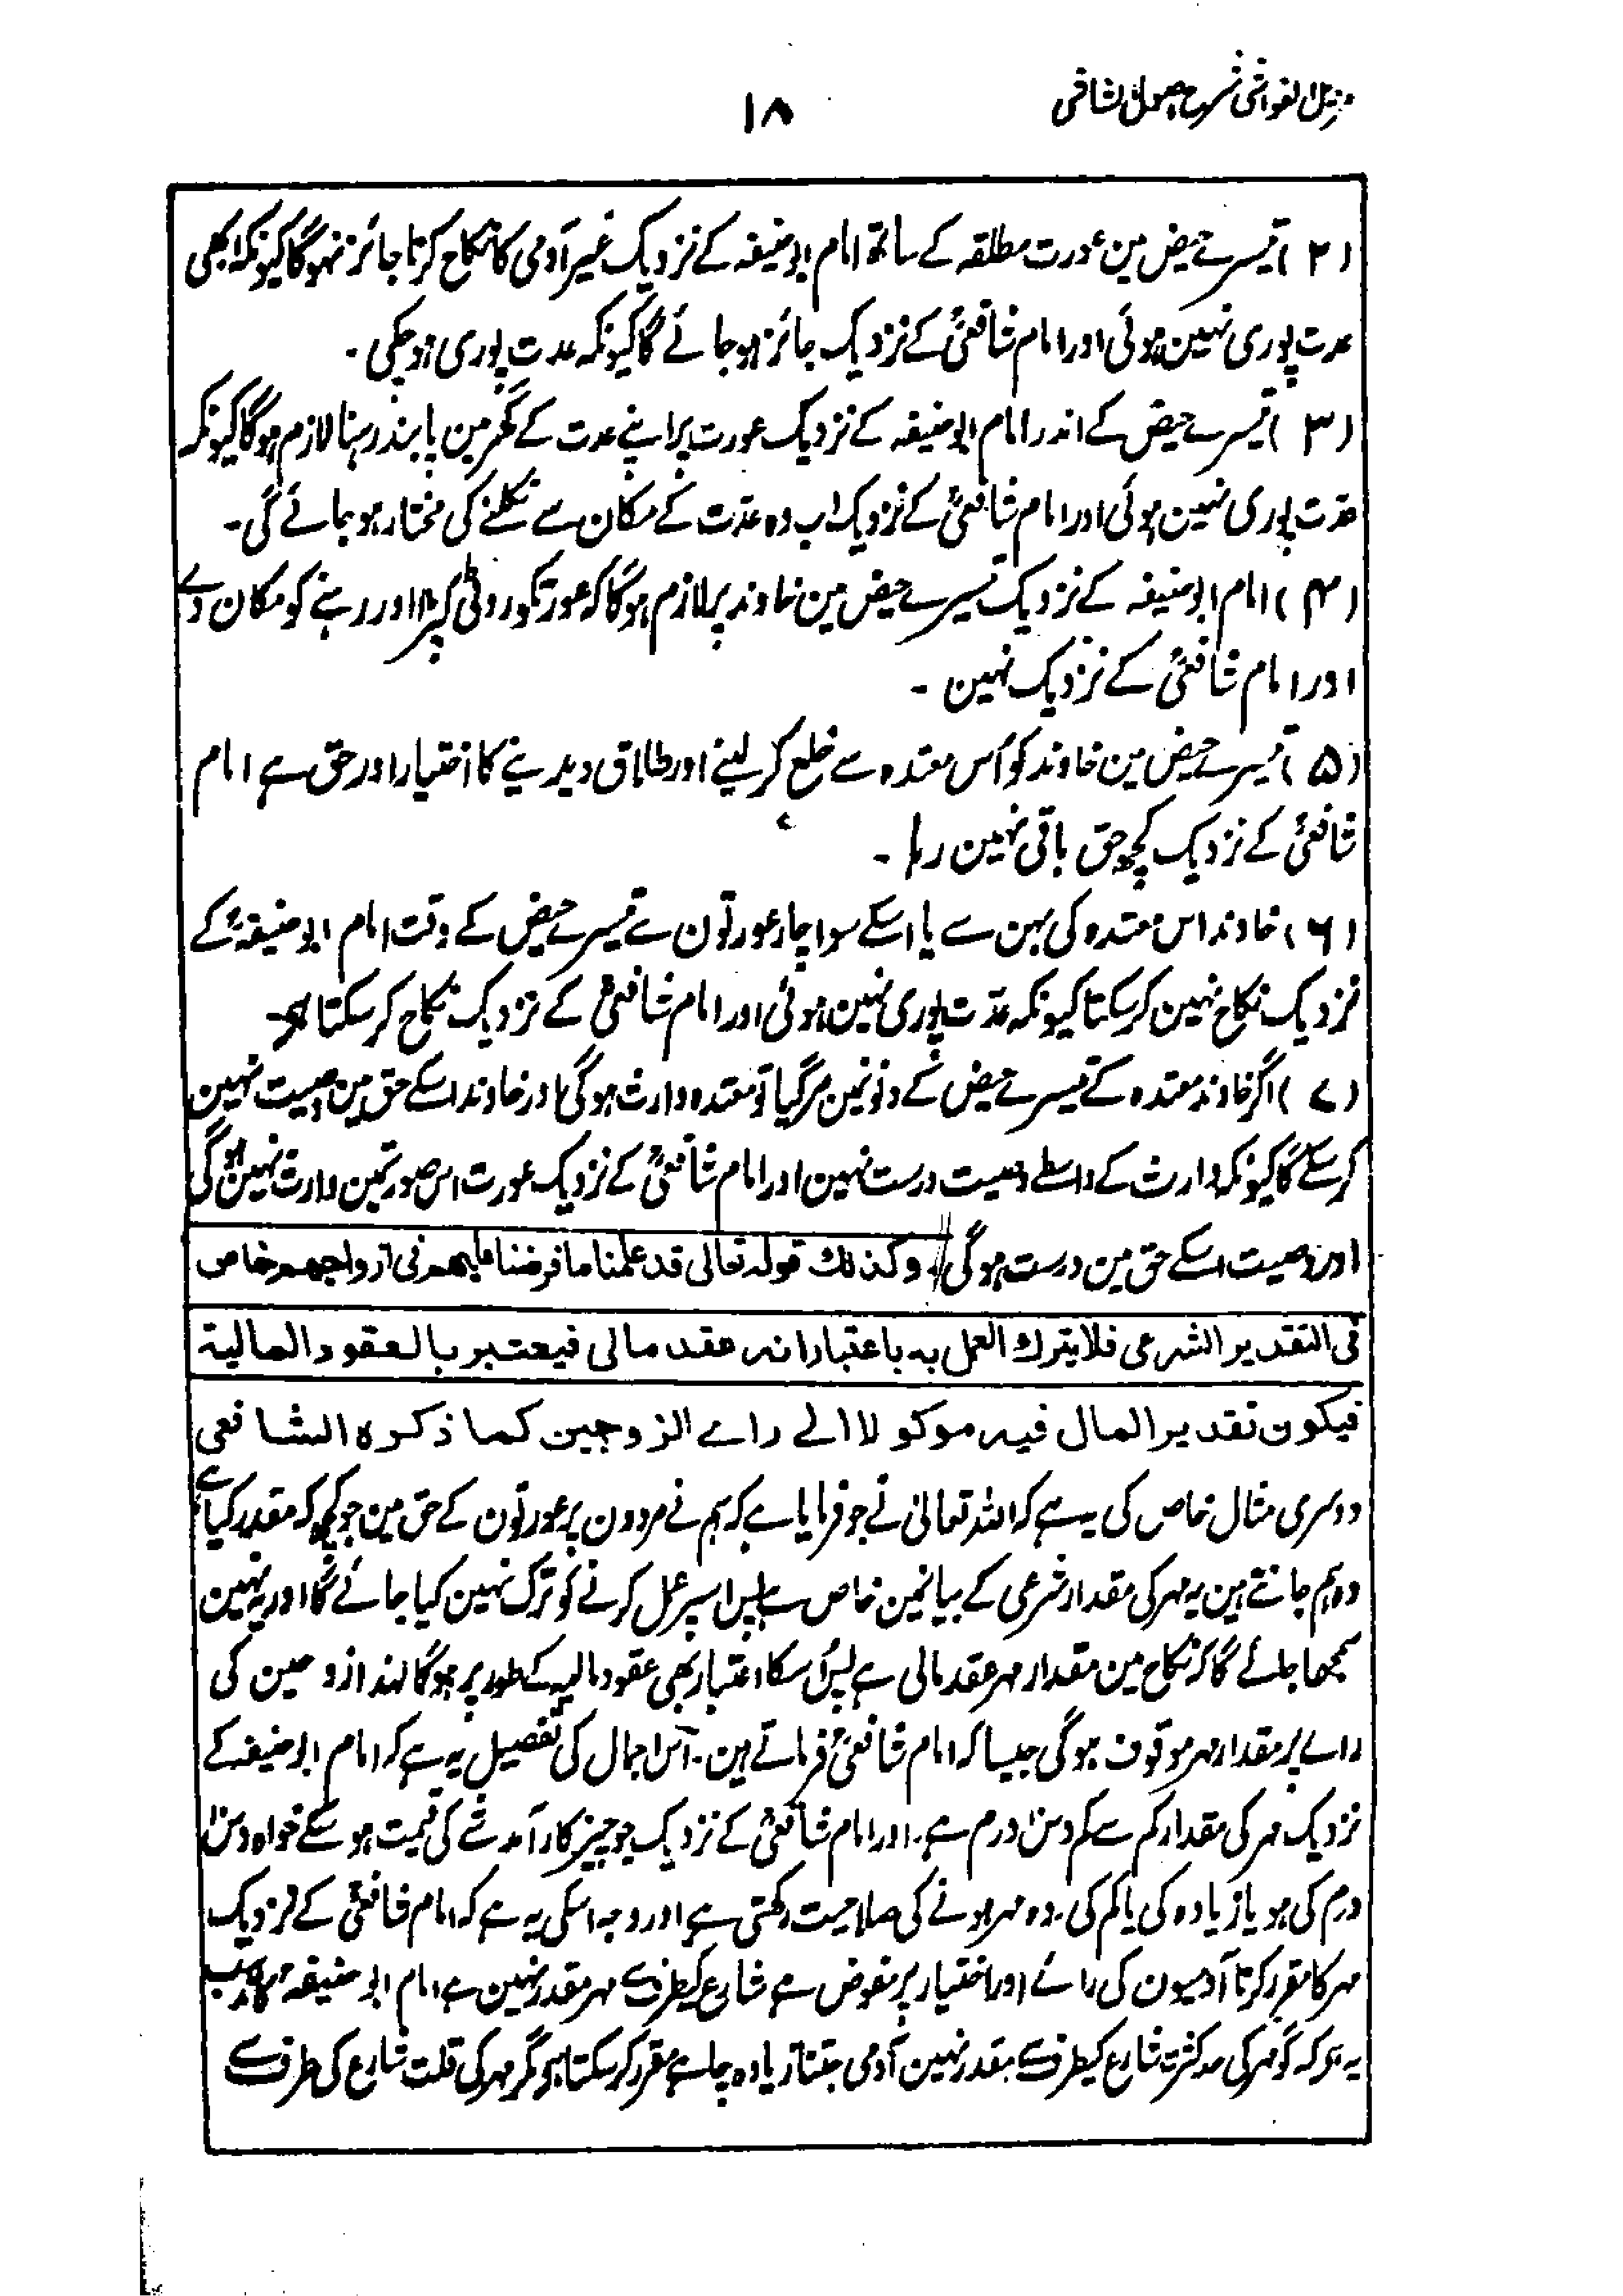 مزیل الغواشی شرح اصول الشاشی
۱۸
(۲) تیسرے حیض مین عورت مطلقہ کے ساتھ امام ابوحنیفہ کے نزدیک غیر آدمی کا نکاح کرنا جائز نہوگا کیونکہ ابھی
عدت پوری نہین ہوئی اور امام شافعیؒ کے نزدیک جائز ہو جائے گا کیونکہ عدت پوری ہو چکی ۔
(۳) تیسرے حیض کے اندر امام ابوحنیفہ کے نزدیک عورت پر اپنے عدت کے گھر مین پابند رہنا لازم ہوگا کیونکہ
عدت پوری نہین ہوئی اور امام شافعیؒ کے نزدیک اب وہ عدّت کے مکان سے نکلنے کی مختار ہو جائے گی ۔
(۴) امام ابوحنیفہ کے نزدیک تیسرے حیض مین خاوند پر لازم ہوگا کہ عورتکو روٹی کپڑا اور رہنے کو مکان دے
اور امام شافعیؒ کے نزدیک نہین ۔
(۵) تیسرے حیض مین خاوند کو اُس معتدہ سے خلع کر لینے اور طلاق دیدینے کا اختیار اور حق ہے امام
شافعیؒ کے نزدیک کچھ حق باقی نہین رہا ۔
(۶) خاوند اس معتدہ کی بہن سے یا اسکے سوا چار عورتون سے تیسرے حیض کے وقت امام ابوحنیفہؒ کے
نزدیک نکاح نہین کر سکتا کیونکہ عدّت پوری نہین ہوئی اور امام شافعیؒ کے نزدیک نکاح کر سکتا ہے۔
(۷) اگر خاوند معتدہ کے تیسرے حیض کے دنونمین مر گیا تو معتدہ وارث ہوگی اور خاوند اسکے حق مین وصیت نہین
کر سکے گا کیونکہ وارث کے واسطے وصیت درست نہین اور امام شافعیؒ کے نزدیک عورت اس صورتمین وارث نہین ہوگی
اور وصیت اسکے حق مین درست ہوگی ۔ وکذلك قوله تعالى قد علمنا ما فرضنا عليهم فى ازواجهم خاص
فى التقدير الشرعى فلا يترك العمل به باعتبار انه عقد مالى فيعتبر بالعقود المالية
فيكون تقدير المال فيه موكولا الے راے الزوجين كما ذكره الشافعى
دوسری مثال خاص کی یہ ہے کہ اللہ تعالیٰ نے جو فرمایا ہے کہ ہم نے مردون پر عورتون کے حق مین جو کچھ کہ مقدر کیا ہے
وہ ہم جانتے ہین یہ مہر کی مقدار شرعی کے بیانمین خاص ہے پس اسپر عمل کرنے کو ترک نہین کیا جائے گا اور یہ نہین
سمجھا جائے گا کہ نکاح مین مقدار مہر عقد مالی ہے پس اُسکا اعتبار بھی عقود مالیہ کے طور پر ہوگا لہذا زوجین کی
راے پر مقدار مہر موقوف ہوگی جیسا کہ امام شافعیؒ فرماتے ہین ۔ اس اجمال کی تفصیل یہ ہے کہ امام ابوحنیفہ کے
نزدیک مہر کی مقدار کم سے کم دس درم ہے ۔ اور امام شافعیؒ کے نزدیک جو چیز کار آمد شے کی قیمت ہو سکے خواہ دس
درم کی ہو یا زیادہ کی یا کم کی ۔ وہ مہر ہونے کی صلاحیت رکھتی ہے اور وجہ اسکی یہ ہے کہ امام شافعیؒ کے نزدیک
مہر کا مقرر کرنا آدمیون کی رائے اور اختیار پر مفوض ہے شارع کیطرف سے مہر مقدر نہین ہے امام ابوحنیفہؒ کا مذہب
یہ ہی کہ گو مہر کی حد کثرت شارع کیطرف سے مقدر نہین آدمی جتنا زیادہ چاہے مقرر کر سکتا ہی مگر مہر کی قلت شارع کی طرف سے